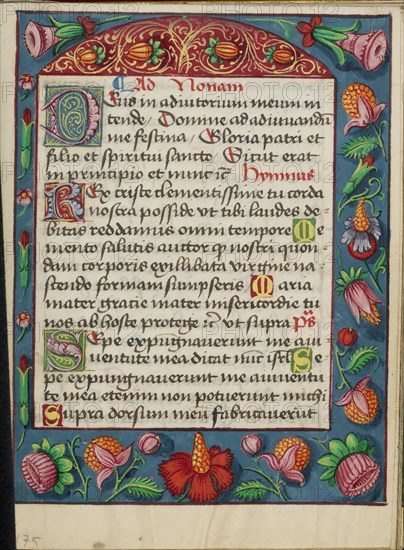 Ad Nonam
Deus in adiutorium meum in
tende / Domine ad adiuvandū
me festina / Gloria patri et
filio et spiritui sancto Sicut erat
in principio et nunc ic̄ Hymnus
Rex criste clementissime tu corda
nostra posside vt tibi laudes de-
bitas reddamus omni tempore Me
mento salutis auctor qp nostri quon
dam corporis exillibata virgine na
scendo formam sumpseris Maria
mater gratie mater misericordie tu
nos ab hoste protege ic̄ vt supra Ps
Sepe expugnauerunt me a
iuuentute mea dicat nūc isrl Se
pe expugnauerunt me a iuuentu
te mea etenim non potuerunt michi
Supra dorsum meū fabricauerūt
175